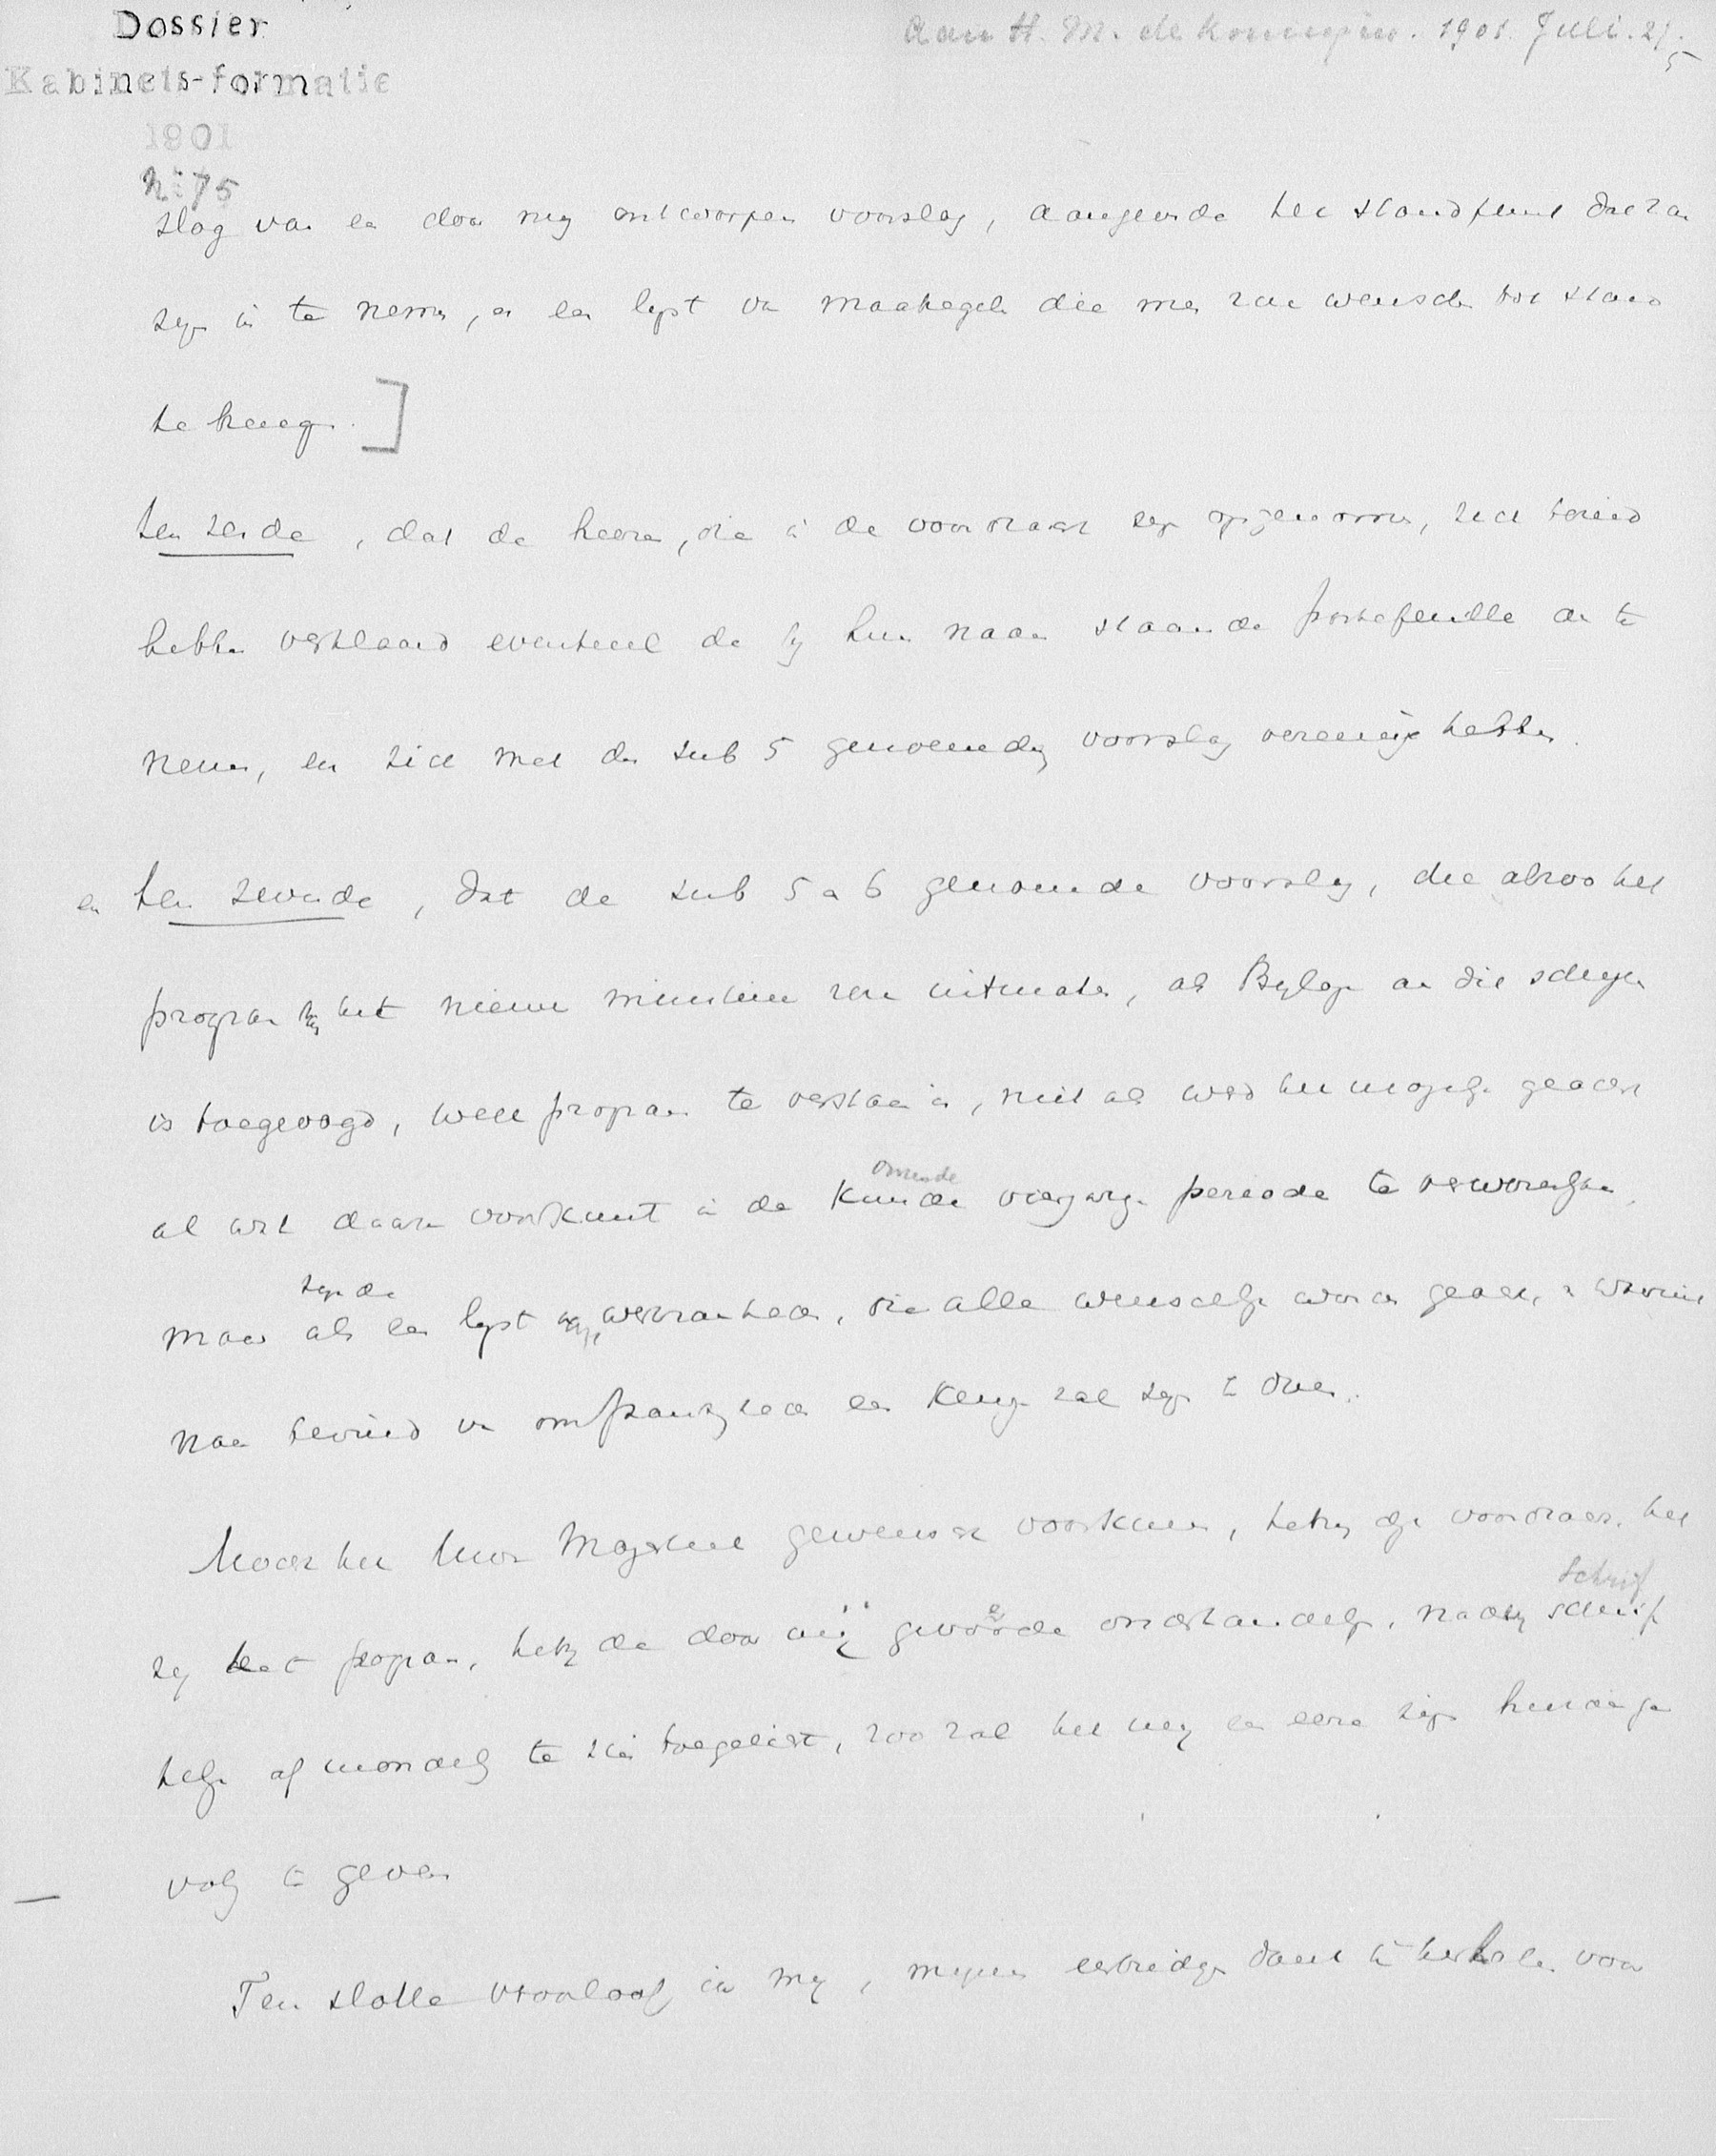 Dossier
Kabinets-formatie
1901
No 75
Aan H. M. de Koningin. 1901. Juli. 27.
5
slag van een door mij ontworpen voorslag, aangevende het standpunt dat zou
zijn in te nemen, en een lijst van maatregelen die men zou wenschen tot stand
te brengen. ]
ten zesde, dat de heeren, die in de voordracht zijn opgenomen, zich bereid
hebben verklaard eventueel de bij hun naam staande portefeuille aan te
nemen, en zich met den sub 5 genoemden voorslag vereenigd hebben.
en ten zevende, dat de sub 5 en 6 genoemde voorslag, die alzoo het
program van het nieuwe ministerie zou uitmaken, als Bijlage aan dit schrijven
is toegevoegd, welk program te verstaan is, niet als werd het mogelijk geacht
omende
al wat daarin voorkomt in de komende vierjarige periode te verwerken,
zijnde
maar als een lijst van werkzaamheden, die alle wenschelijk worden geacht, en waaruit
naar bevind van omstandigheden een keuze zal zijn te doen.
Mocht het Uwe Majesteit gewenscht voorkomen, hetzij deze voordracht, het
schrif
zij het program, hetzij de door mij gevoerde onderhandelingen, nader schrif
telijk of mondeling te zien toegelicht, zoo zal het mij een eere zijn hieraan
volg te geven
Ten slotte veroorloof ik mij, mijnen eerbiedigen dank te herhalen voor